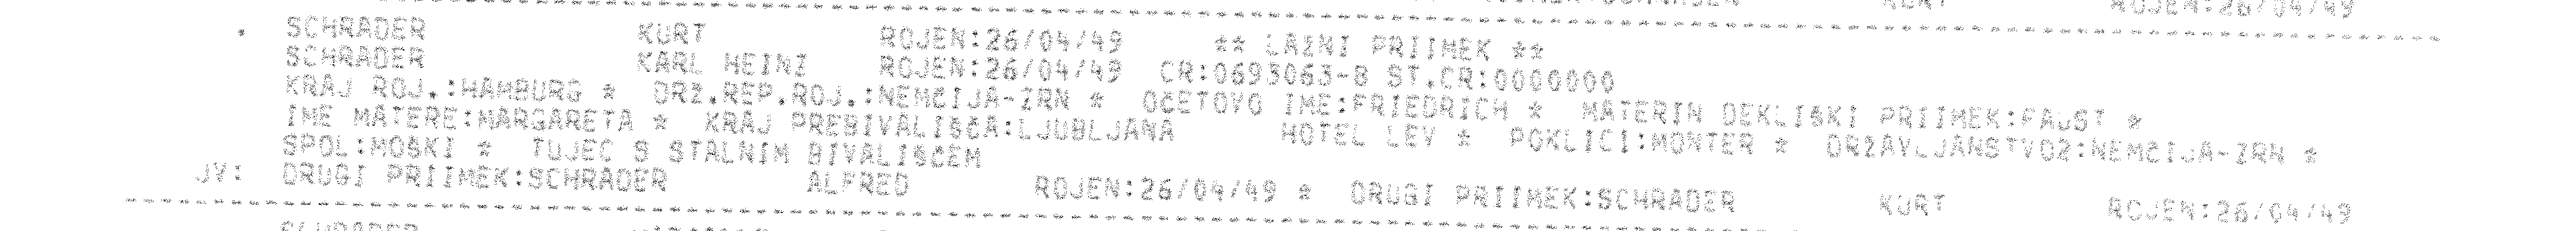 KURT ROJEN:26/04/49
. SCHRADER KURT ROJEN:26/04/49 ** LAZNI PRIIMEK **
SCHRADER KARL HEINI ROJEN:26/04/49 CR:0693063-8 ST.CR:0000000
KRAJ ROJ.:HAMBURG * DRZ.REP.ROJ.:NEMCIJA-ZRN * OCETOVO IME:FRIEDRICH * MATERIN DEKLISKI PRIIMEK:FAUST *
IME MATERE:MARGARETA * KRAJ PREBIVALISCA:LJUBLJANA HOTEL LEV * POKLICI:MONTER * DRZAVLJANSTVO2:NEMCIJA-ZRN *
SPOL:MOSKI * TUJEC S STALNIM BIVALISCEM
JV: DRUGI PRIIMEK:SCHRADER ALFRED ROJEN:26/04/49 * DRUGI PRIIMEK:SCHRADER KURT ROJEN:26/04/49
SCHRADER